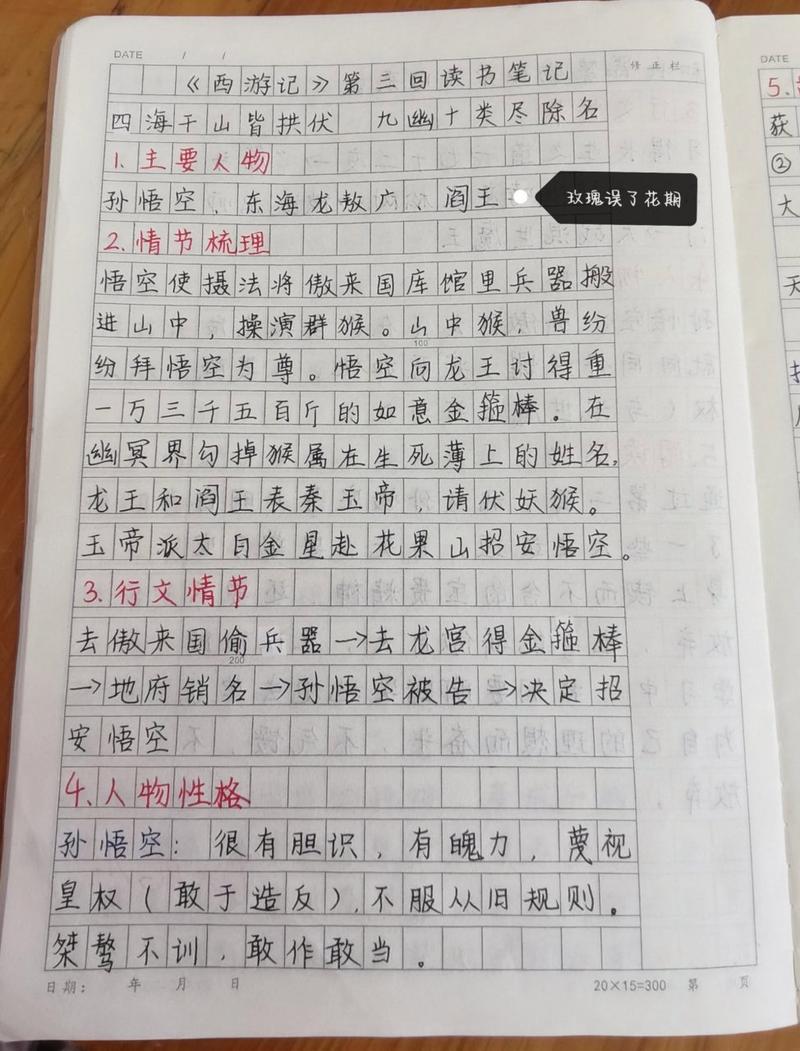 DATE / /
修 正 栏
《西游记》第三回读书笔记
四海千山皆拱伏 九幽十类尽除名
1、主要人物
孙悟空、东海龙敖广、阎王
玫瑰误了花期
2、情节梳理
悟空使摄法将傲来国库馆里兵器搬
进山中，操演群猴。山中猴，兽纷
100
纷拜悟空为尊。悟空向龙王讨得重
一万三千五百斤的如意金箍棒。在
幽冥界勾掉猴属在生死薄上的姓名，
龙王和阎王表奏玉帝，请伏妖猴。
玉帝派太白金星赴花果山招安悟空。
3、行文情节
去傲来国偷兵器→去龙宫得金箍棒
200
→地府销名→孙悟空被告→决定招
安悟空
4、人物性格
孙悟空：很有胆识，有魄力，蔑视
皇权（敢于造反），不服从旧规则。
桀骜不训，敢作敢当。
日期： 年 月 日
20×15=300 第 页
DATE
5、
获
②
大
天